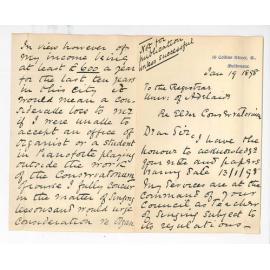 16 Collins Street, E.,
Melbourne
Jan 19 1898
To the Registrar
Univ. of Adelaide
Re Elder Conservatorium
Dear Sir,
I have the
honour to acknowledge
your note and papers
bearing date 13/1/98
My services are at the
command of your
Council as Teacher
of Singing subject to
its regulations -
Not for
publication
unless successful
In view however of
my income being
at least £600 a year
for the last ten years
in this city it
would mean a con-
siderable loss to me
if I were unable to
accept an office of
Organist or a student
in Pianoforte playing
outside the work of
the Conservatorium
Of course I fully concur
in the matter of Singing
lessons and would urge
consideration re Organ